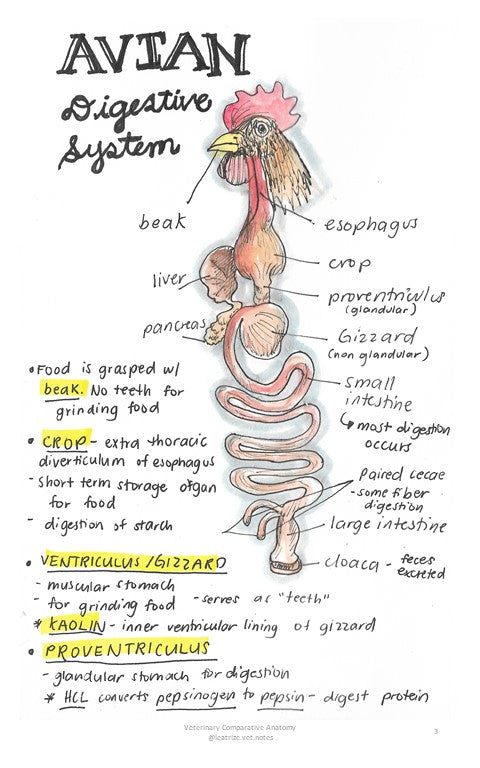 AVIAN
Digestive
System
beak
esophagus
crop
liver
proventriculus
(glandular)
pancreas
Gizzard
(non glandular)
small
intestine
↳ most digestion
occurs
Paired cecae
- some fiber
digestion
large intestine
cloaca - feces
excreted
• Food is grasped w/
beak. No teeth for
grinding food
• CROP - extra thoracic
diverticulum of esophagus
- short term storage organ
for food
- digestion of starch
• VENTRICULUS/GIZZARD
- muscular stomach
- for grinding food - serves as "teeth"
* KAOLIN - inner ventricular lining of gizzard
• PROVENTRICULUS
- glandular stomach for digestion
* HCL converts pepsinogen to pepsin - digest protein
Veterinary Comparative Anatomy
@leatrize.vet.notes
3